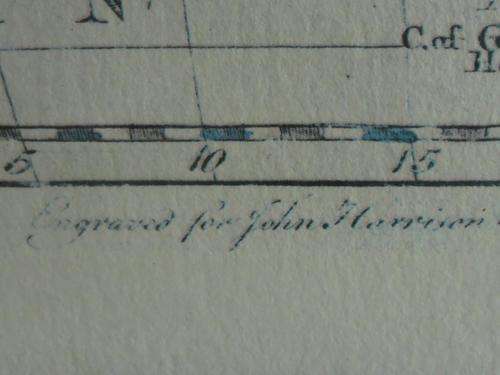 N
C. of G
5 10 15
Engraved for John Harrison